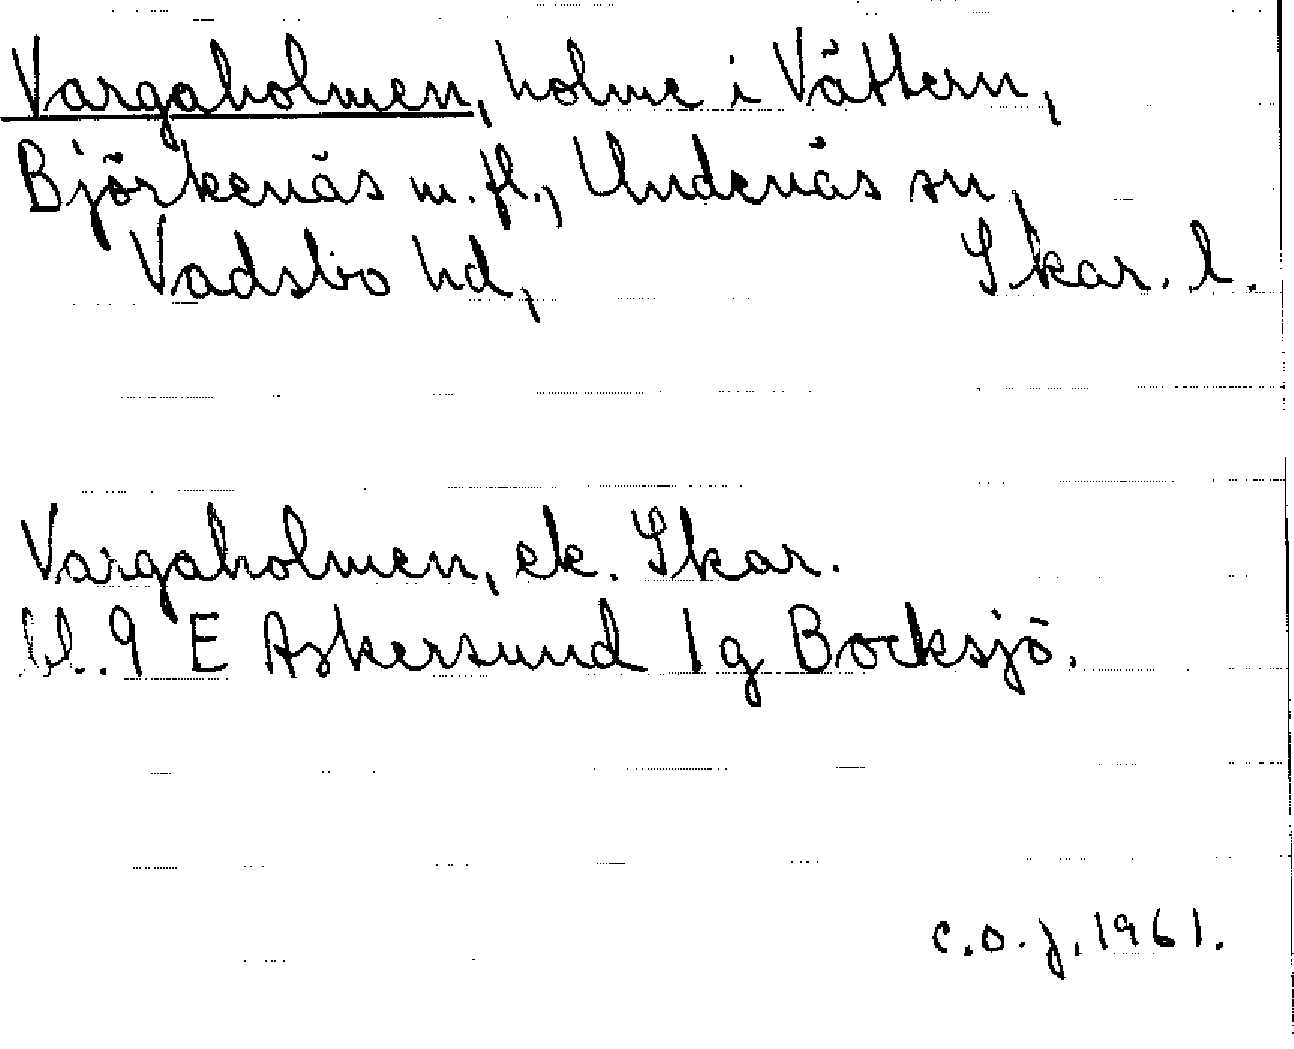 Vargaholmen, holme i Vättern,
Björkenäs m.fl., Undenäs sn,
Vadsbo hd, Skar. l.
Vargaholmen, ek. Skar.
bl. 9 E Askersund 1g Bocksjö.
C.O.J. 1961.